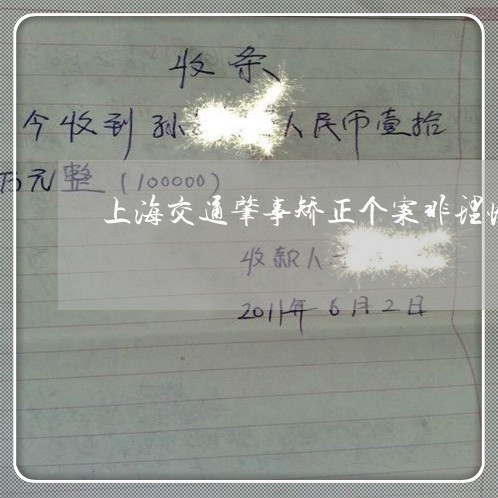 收条
今收到孙 人民币壹拾
万元整(100000)
上海交通肇事矫正个案非理性
收款人
2011年6月2日